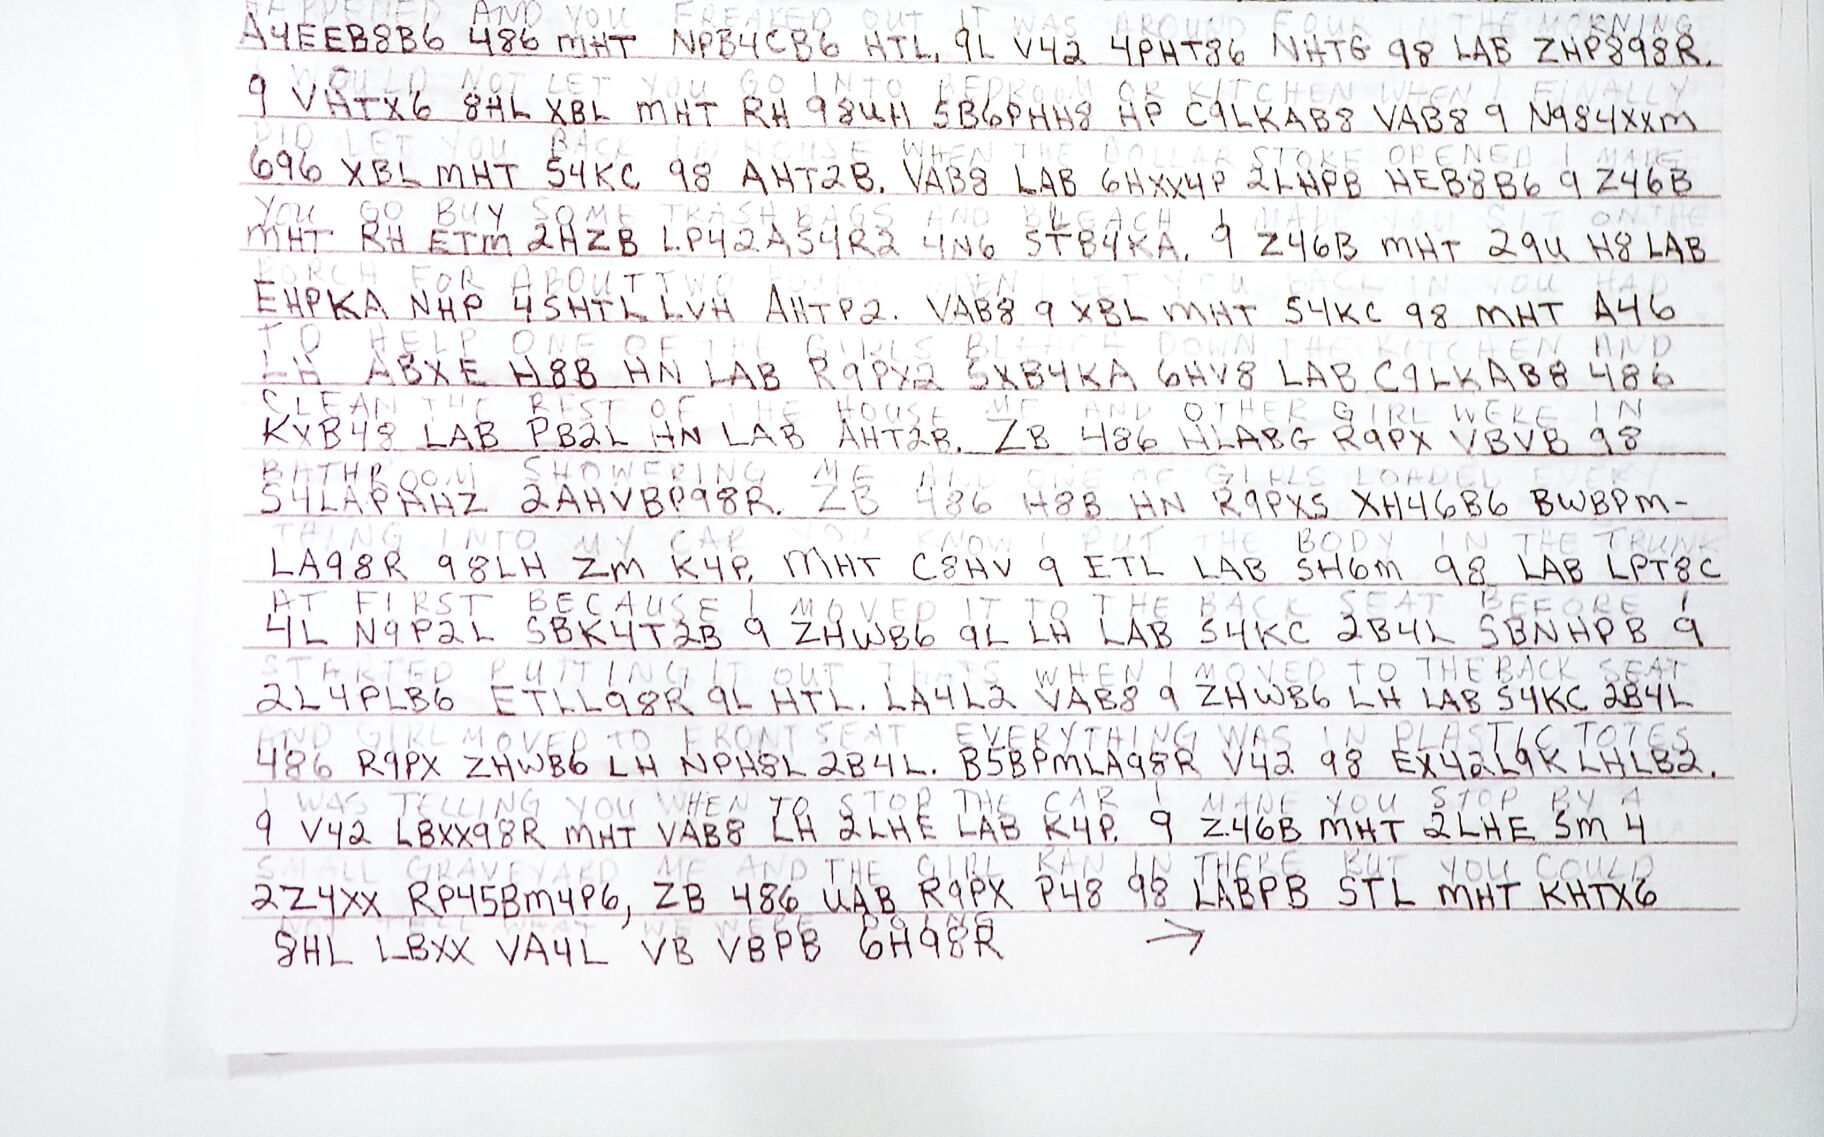 HAPPENED AND YOU FREAKED OUT IT WAS AROUND FOUR IN THE MORNING
A4EEB8B6 486 mHT NPB4CB6 HTL, 9L V42 4PHT86 NHTG 98 LAB ZHP898R.
I WOULD NOT LET YOU GO INTO BEDROOM OR KITCHEN WHEN I FINALLY
9 VHTX6 8HL XBL mHT RH 98UH 5B6PHH8 HP C9LKAB8 VAB8 9 N984XXm
DID LET YOU BACK IN HOUSE WHEN THE DOLLAR STORE OPENED I MADE
696 XBL mHT S4KC 98 AHT2B. VAB8 LAB 6HXX4P 2LHPB HEB8B6 9 Z46B
YOU GO BUY SOME TRASH BAGS AND BLEACH I MADE YOU SIT ON THE
mHT RH ETm 2HZB LP42AS4R2 4N6 STB4KA. 9 Z46B mHT 29U H8 LAB
PORCH FOR ABOUT TWO WHEN I LET YOU BACK IN YOU HAD
EHPKA NHP 4SHTL LVH AHTP2. VAB8 9 XBL mHT S4KC 98 mHT A46
TO HELP ONE OF THE GIRLS BLEACH DOWN THE KITCHEN AND
LH ABXE H8B HN LAB R9PX2 SXB4KA 6HV8 LAB C9LKAB8 486
CLEAN THE REST OF THE HOUSE ME AND OTHER GIRL WERE IN
KXB48 LAB PB2L HN LAB AHT2B. ZB 486 HLABG R9PX VBVB 98
BATHROOM SHOWERING ME AND ONE OF GIRLS LOADED EVERY
S4LAPHHZ 2AHVBP98R. ZB 486 H8B HN R9PXS XH46B6 BWBPm-
THING INTO MY CAR YOU KNOW I PUT THE BODY IN THE TRUNK
LA98R 98LH Zm K4P. MHT C8HV 9 ETL LAB SH6m 98 LAB LPT8C
AT FIRST BECAUSE I MOVED IT TO THE BACK SEAT BEFORE I
4L N9P2L SBK4T2B 9 ZHWB6 9L LH LAB S4KC 2B4L SBNHPB 9
STARTED PUTTING IT OUT THATS WHEN I MOVED TO THE BACK SEAT
2L4PLB6 ETLL98R 9L HTL. LA4L2 VAB8 9 ZHWB6 LH LAB S4KC 2B4L
AND GIRL MOVED TO FRONT SEAT EVERYTHING WAS IN PLASTIC TOTES
486 R9PX ZHWB6 LH NPH8L 2B4L. B5BPmLA98R V42 98 EX42L9K LHLB2.
I WAS TELLING YOU WHEN TO STOP THE CAR I MADE YOU STOP BY A
9 V42 LBXX98R mHT VAB8 LH 2LHE LAB K4P. 9 Z46B mHT 2LHE Sm 4
SMALL GRAVEYARD ME AND THE GIRL RAN IN THERE BUT YOU COULD
2Z4XX RP45Bm4P6, ZB 486 UAB R9PX P48 98 LABPB STL mHT KHTX6
NOT TELL WHAT WE WERE DOING
8HL LBXX VA4L VB VBPB 6H98R →